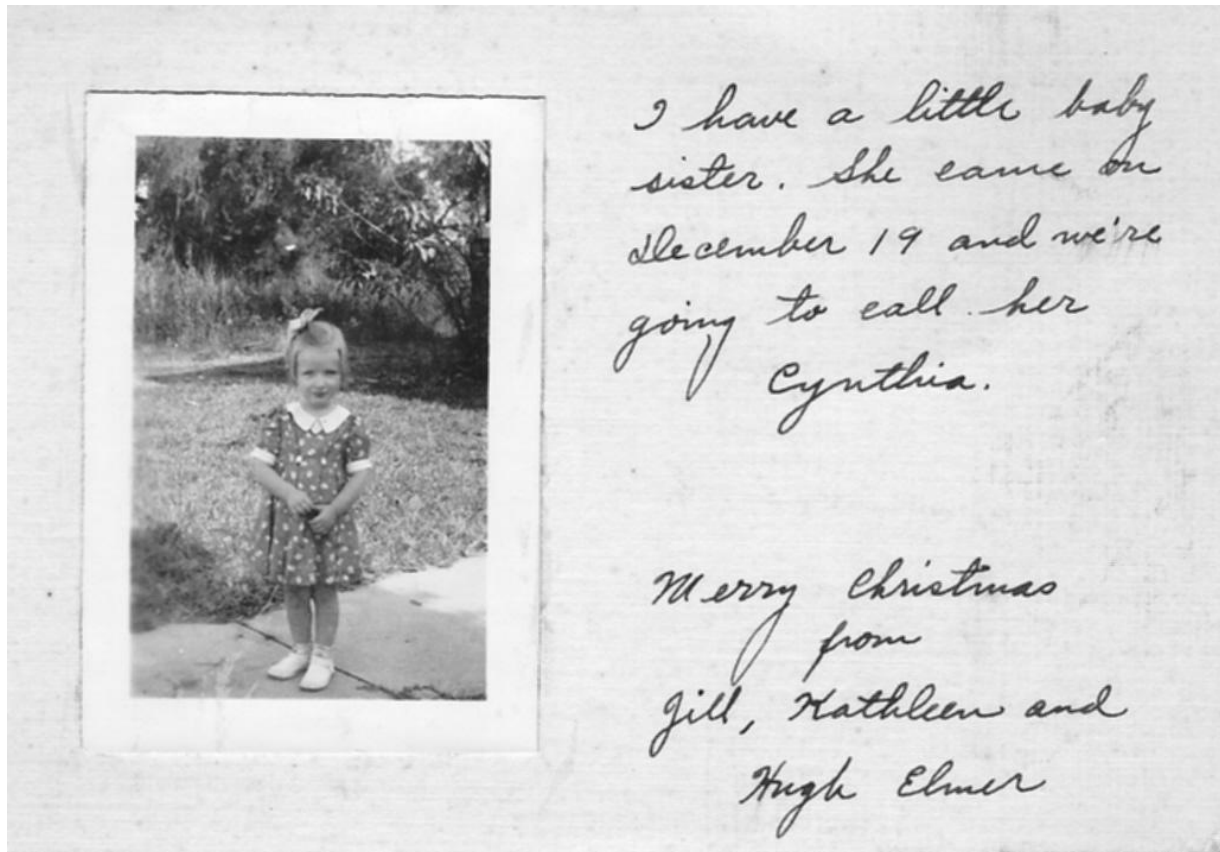 I have a little baby
sister. She came on
December 19 and we're
going to call her
Cynthia.
Merry Christmas
from
Jill, Kathleen and
Hugh Elmer